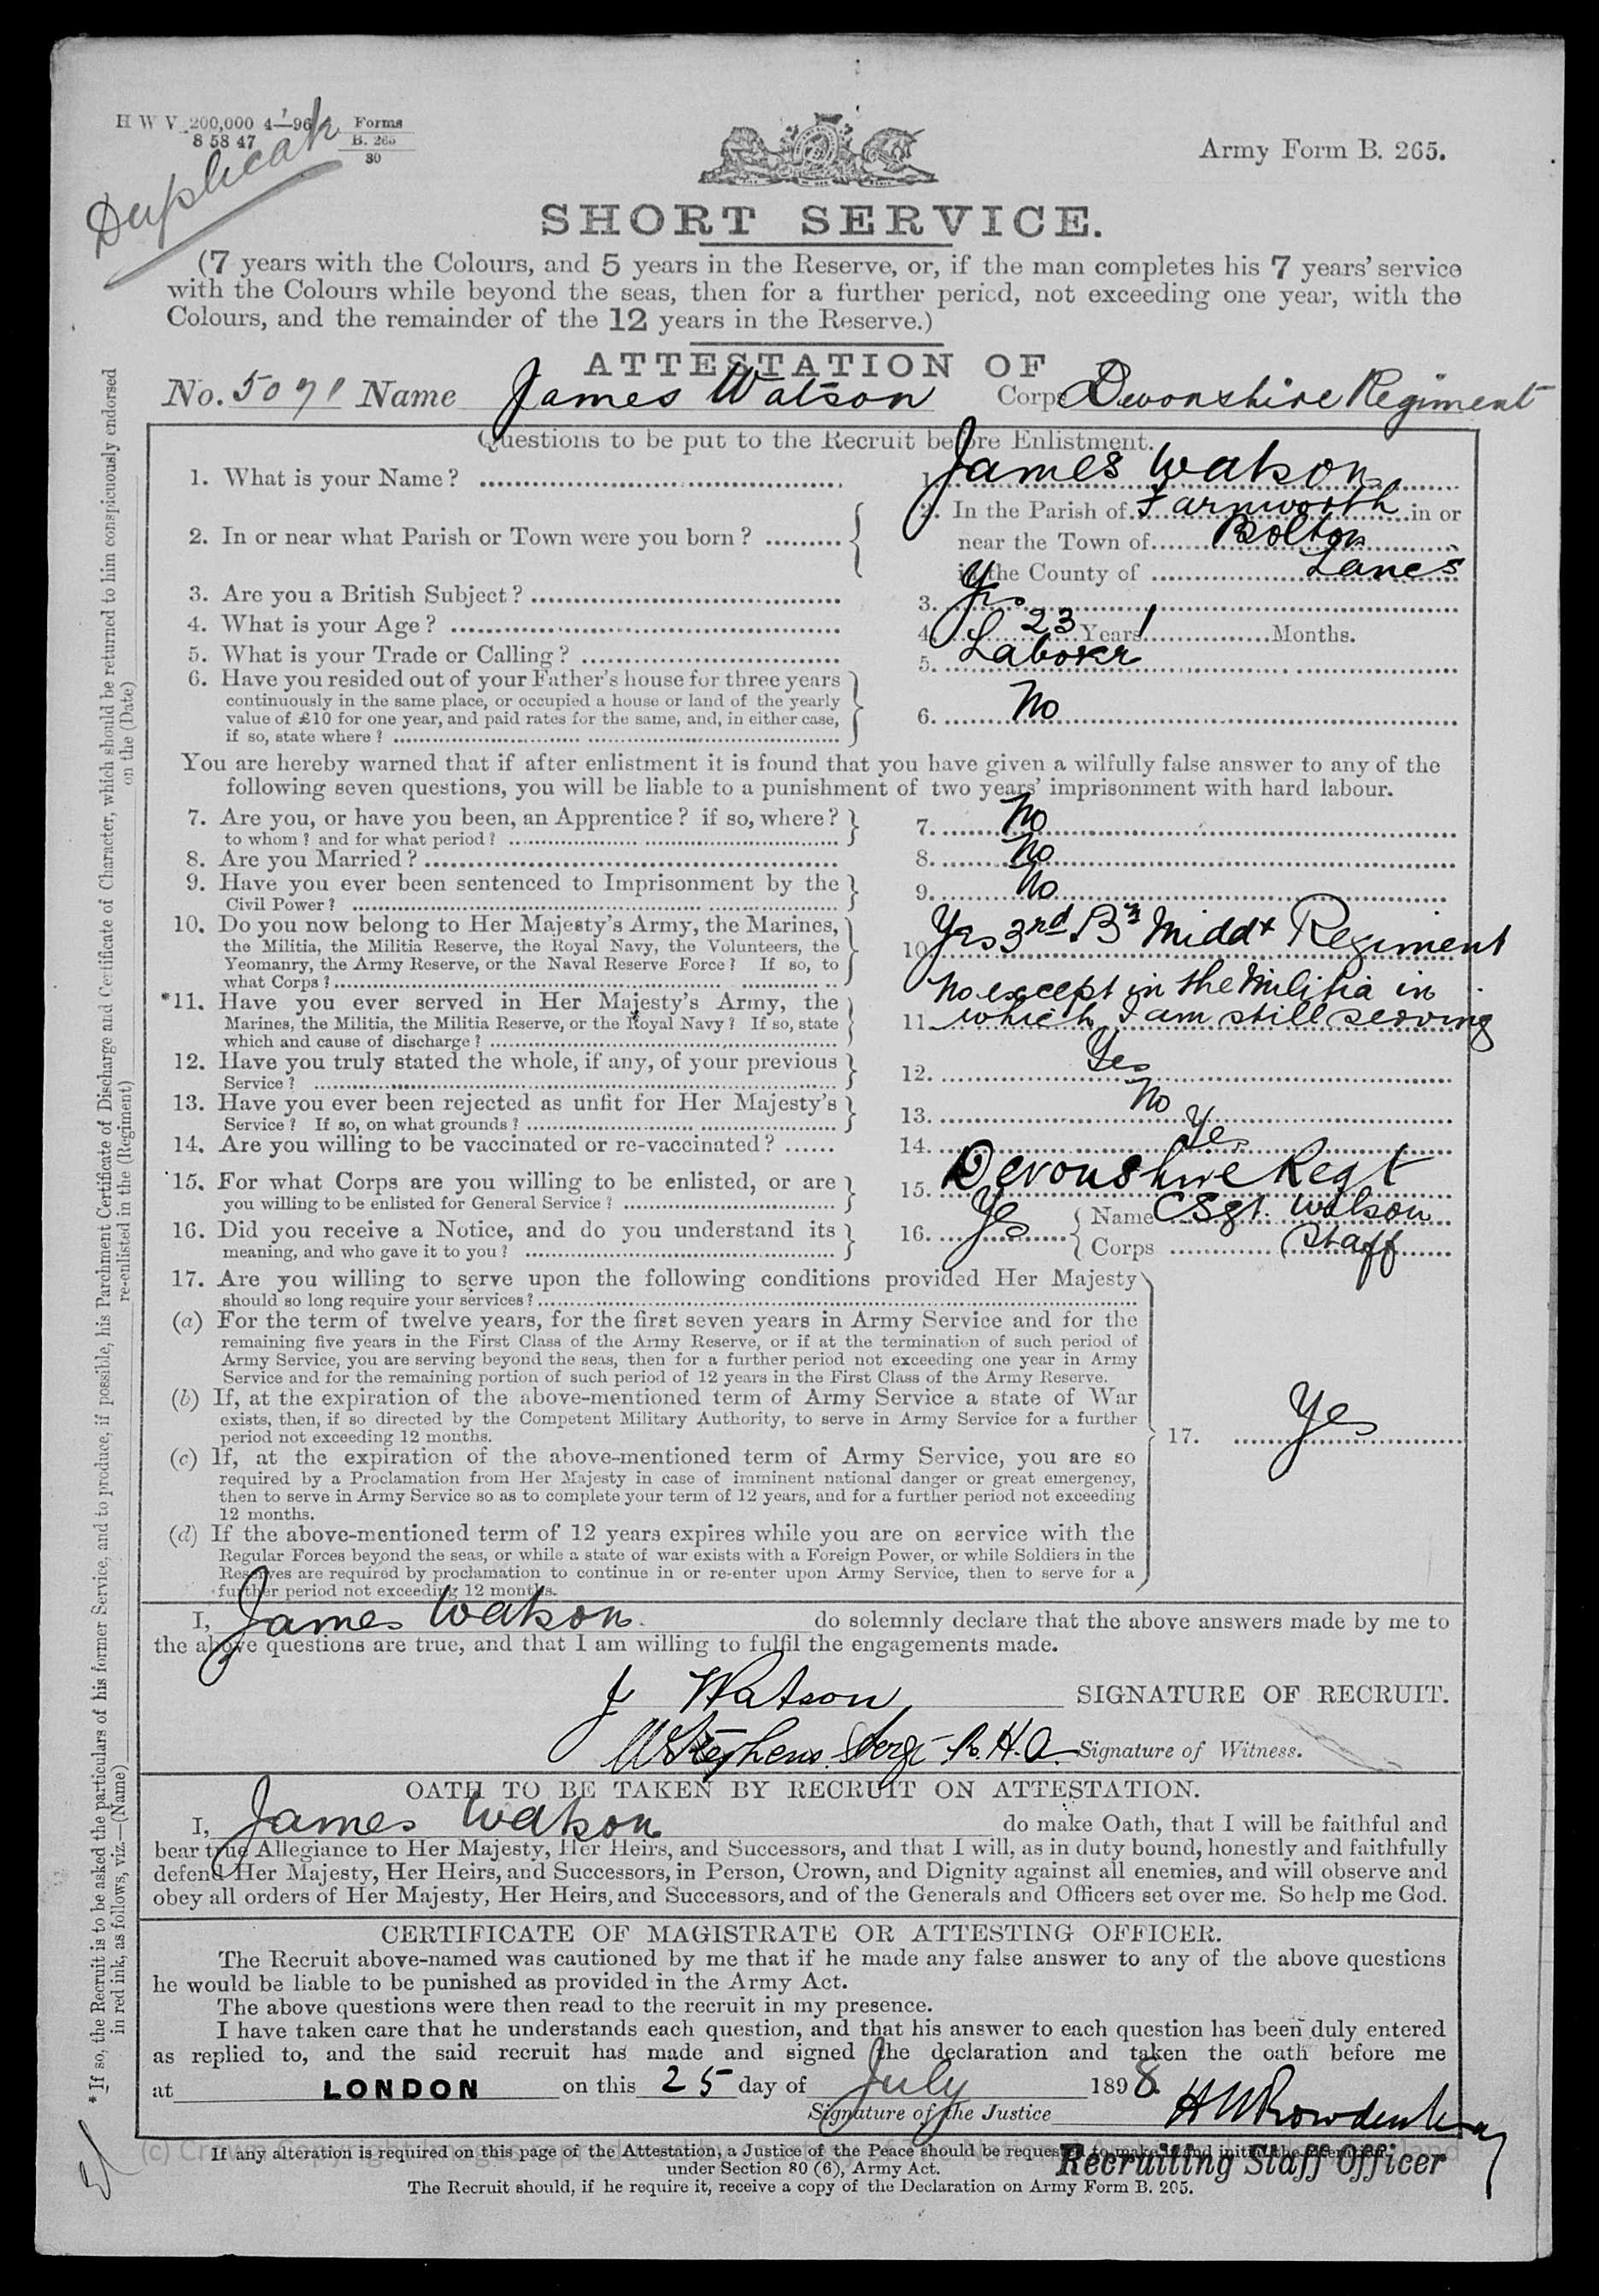 H W V 200,000 4—96 Forms
8 58 47 B. 265
30
Duplicate
Army Form B. 265.
SHORT SERVICE.
(7 years with the Colours, and 5 years in the Reserve, or, if the man completes his 7 years' service
with the Colours while beyond the seas, then for a further period, not exceeding one year, with the
Colours, and the remainder of the 12 years in the Reserve.)
ATTESTATION OF
No. 5071 Name James Watson Corps Devonshire Regiment
Questions to be put to the Recruit before Enlistment.
1. What is your Name? 1. James Watson
2. In or near what Parish or Town were you born? 2. In the Parish of Farnworth in or
near the Town of Bolton
in the County of Lancs
3. Are you a British Subject? 3. Yes
4. What is your Age? 4. 23 Years 1 Months.
5. What is your Trade or Calling? 5. Laborer
6. Have you resided out of your Father's house for three years
continuously in the same place, or occupied a house or land of the yearly
value of £10 for one year, and paid rates for the same, and, in either case,
if so, state where? 6. No
You are hereby warned that if after enlistment it is found that you have given a wilfully false answer to any of the
following seven questions, you will be liable to a punishment of two years' imprisonment with hard labour.
7. Are you, or have you been, an Apprentice? if so, where?
to whom? and for what period? 7. No
8. Are you Married? 8. No
9. Have you ever been sentenced to Imprisonment by the
Civil Power? 9. No
10. Do you now belong to Her Majesty's Army, the Marines,
the Militia, the Militia Reserve, the Royal Navy, the Volunteers, the
Yeomanry, the Army Reserve, or the Naval Reserve Force? If so, to
what Corps? 10. Yes 3rd Bn Middx Regiment
*11. Have you ever served in Her Majesty's Army, the
Marines, the Militia, the Militia Reserve, or the Royal Navy? If so, state
which and cause of discharge? 11. No except in the Militia in
which I am still serving
12. Have you truly stated the whole, if any, of your previous
Service? 12. Yes
13. Have you ever been rejected as unfit for Her Majesty's
Service? If so, on what grounds? 13. No
14. Are you willing to be vaccinated or re-vaccinated? 14. Yes
15. For what Corps are you willing to be enlisted, or are
you willing to be enlisted for General Service? 15. Devonshire Regt
16. Did you receive a Notice, and do you understand its
meaning, and who gave it to you? 16. Yes Name CSgt. Wilson
Corps Staff
17. Are you willing to serve upon the following conditions provided Her Majesty
should so long require your services?
(a) For the term of twelve years, for the first seven years in Army Service and for the
remaining five years in the First Class of the Army Reserve, or if at the termination of such period of
Army Service, you are serving beyond the seas, then for a further period not exceeding one year in Army
Service and for the remaining portion of such period of 12 years in the First Class of the Army Reserve.
(b) If, at the expiration of the above-mentioned term of Army Service a state of War
exists, then, if so directed by the Competent Military Authority, to serve in Army Service for a further
period not exceeding 12 months.
17. Yes
(c) If, at the expiration of the above-mentioned term of Army Service, you are so
required by a Proclamation from Her Majesty in case of imminent national danger or great emergency,
then to serve in Army Service so as to complete your term of 12 years, and for a further period not exceeding
12 months.
(d) If the above-mentioned term of 12 years expires while you are on service with the
Regular Forces beyond the seas, or while a state of war exists with a Foreign Power, or while Soldiers in the
Reserves are required by proclamation to continue in or re-enter upon Army Service, then to serve for a
further period not exceeding 12 months.
I, James Watson do solemnly declare that the above answers made by me to
the above questions are true, and that I am willing to fulfil the engagements made.
J Watson SIGNATURE OF RECRUIT.
W Stephens Sergt R.H.A. Signature of Witness.
OATH TO BE TAKEN BY RECRUIT ON ATTESTATION.
I, James Watson do make Oath, that I will be faithful and
bear true Allegiance to Her Majesty, Her Heirs, and Successors, and that I will, as in duty bound, honestly and faithfully
defend Her Majesty, Her Heirs, and Successors, in Person, Crown, and Dignity against all enemies, and will observe and
obey all orders of Her Majesty, Her Heirs, and Successors, and of the Generals and Officers set over me. So help me God.
CERTIFICATE OF MAGISTRATE OR ATTESTING OFFICER.
The Recruit above-named was cautioned by me that if he made any false answer to any of the above questions
he would be liable to be punished as provided in the Army Act.
The above questions were then read to the recruit in my presence.
I have taken care that he understands each question, and that his answer to each question has been duly entered
as replied to, and the said recruit has made and signed the declaration and taken the oath before me
at LONDON on this 25 day of July 1898.
Signature of the Justice
Recruiting Staff Officer
If any alteration is required on this page of the Attestation, a Justice of the Peace should be requested to make it and initial the alteration
under Section 80 (6), Army Act.
The Recruit should, if he require it, receive a copy of the Declaration on Army Form B. 265.
*If so, the Recruit is to be asked the particulars of his former Service, and to produce, if possible, his Parchment Certificate of Discharge and Certificate of Character, which should be returned to him conspicuously endorsed
in red ink, as follows, viz.—(Name) re-enlisted in the (Regiment) on the (Date)